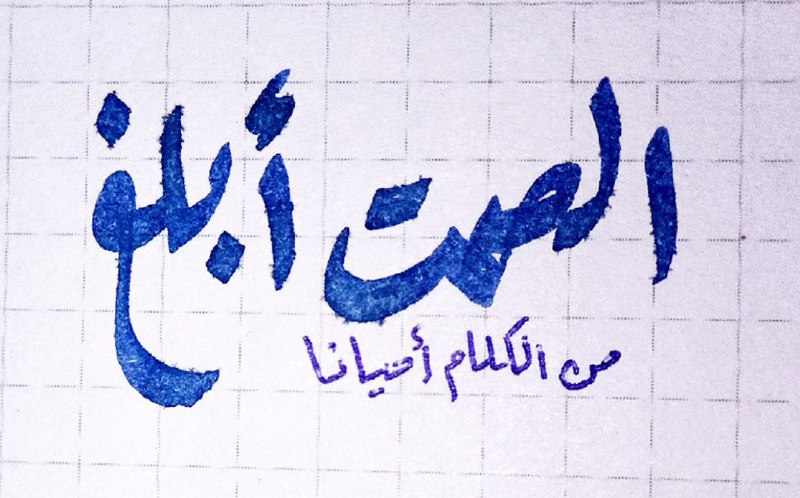 الصمت أبلغ
من الكلام أحيانا